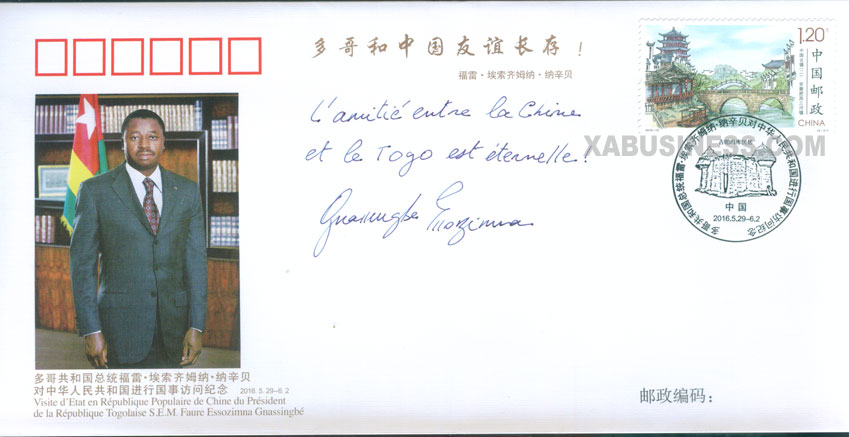 多哥和中国友谊长存！
福雷·埃索齐姆纳·纳辛贝
L'amitié entre la Chine
et le Togo est éternelle !
Gnassingbe Essozimna
1.20元
中国邮政
CHINA
XABUSINESS.COM
多哥共和国总统福雷·埃索齐姆纳·纳辛贝对中华人民共和国进行国事访问纪念
中国
2016.5.29-6.2
多哥共和国总统福雷·埃索齐姆纳·纳辛贝
对中华人民共和国进行国事访问纪念 2016.5.29—6.2
Visite d'Etat en République Populaire de Chine du Président
de la République Togolaise S.E.M. Faure Essozimna Gnassingbé
邮政编码：